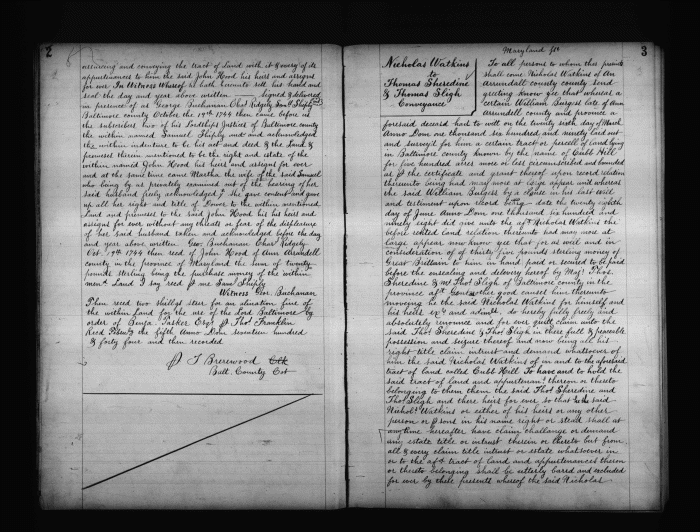 2
assuring and conveying the tract of Land with it & every of its
appurtenances to him the said John Hood his heirs and assigns
for ever In Witness Whereof he hath hereunto set his hand and
seal the day and year above written Signed & delivered
in presence of us George Buchanan Chas Ridgely Saml Shiply
Baltimore county October the 17th 1744 then came before us
the subscribers two of his Lordships Justices of Baltimore county
the within named Samuel Shiply and acknowledged
the within indenture to be his act and deed & the Land &
premises therein mentioned to be the right and estate of the
within named John Hood his heirs and assigns for ever
and at the same time came Martha the wife of the said Samuel
who being by us privately examined out of the hearing of her
said husband freely acknowledged yt she gave consent and gave
up all her right and title of Dower to the within mentioned
Land and premises to the said John Hood his heirs and
assigns for ever without any threats or fear of the displeasing
of her said husband taken and acknowledged before the day
and year above written Geo. Buchanan Chas Ridgely
Oct. 17th 1744 then recd of John Hood of Ann Arundell
county in the province of Maryland the sum of twenty
pounds sterling being the purchase money of the within
ment. Land I say recd p me Saml Shiply
Witness Geor. Buchanan
Then recd two shillgs ster for an alienation fine of
the within Land for the use of the Lord Baltimore by
order of Benja. Tasker Esqr p Thos. Franklin
the fifth Anno Dom seventeen hundred
& forty four and then recorded
p T Brerewood Clk
Balt. County Cot
Maryland fst
3
Nicholas Watkins
to
Thomas Sheredine
& Thomas Sligh
Conveyance
To all persons to whom these presents
shall come Nicholas Watkins of Ann
Arrundell county send
greeting Know yee that whereas a
certain William Burgess late of Ann
Arrundell county and province a
foresaid deceased had to wit on the twenty sixth day of March
Anno Dom one thousand six hundred and ninety laid out
and surveyd for him a certain tract or percell of land lying
in Baltimore county known by the name of Cubs Hill
for five hundred acres more or less circumscribed and bounded
as p the certificate and grant thereof upon record relation
thereunto being had may more at large appear and whereas
the said William Burgess by a clause in his last will
and testiment upon record being date the twenty eighth
day of June Anno Dom one thousand six hundred and
ninety eight did give unto the aft Nicholas Watkins the
before recited land relation thereunto had may more at
large appear now know yee that for as well and in
consideration of of thirty five pounds sterling money of
Great Brittain to him in hand paid or secured to be paid
before the ensealing and delivery hereof by Majr. Thos.
Sheredine & mr Thos Sligh of Baltimore county in the
province aft Gents other good causes him thereunto
moveing he the said Nicholas Watkins for himself and
his heirs exrs and admrs. do hereby fully freely and
absolutely renounce and for ever quitt claim unto the
said Thos Sheredine & Thos Sligh in there full & peaceable
possession and seizure thereof and now being all his
right title claim intrust and demand whatsoever of
him the said Nicholas Watkins of in and to the aforesaid
tract of land called Cubbs Hill To have and to hold the
said tract of land and appurtenans. thereon or thereto
belonging to them them the said Thos Sheredine and
Thos Sligh and there heirs for ever so that the said
Nichols Watkins or either of his heirs or any other
person or psons in his name right or stead shall at
anytime hereafter have claim challange or demand
any estate title or intrust therein or thereto but from
all & every claim title intrust or estate whatsoever in
or to the aft tract of land and appurtenances thereon
or thereto belonging shall be utterly bared and excluded
for ever by these presents whereof the said Nicholas